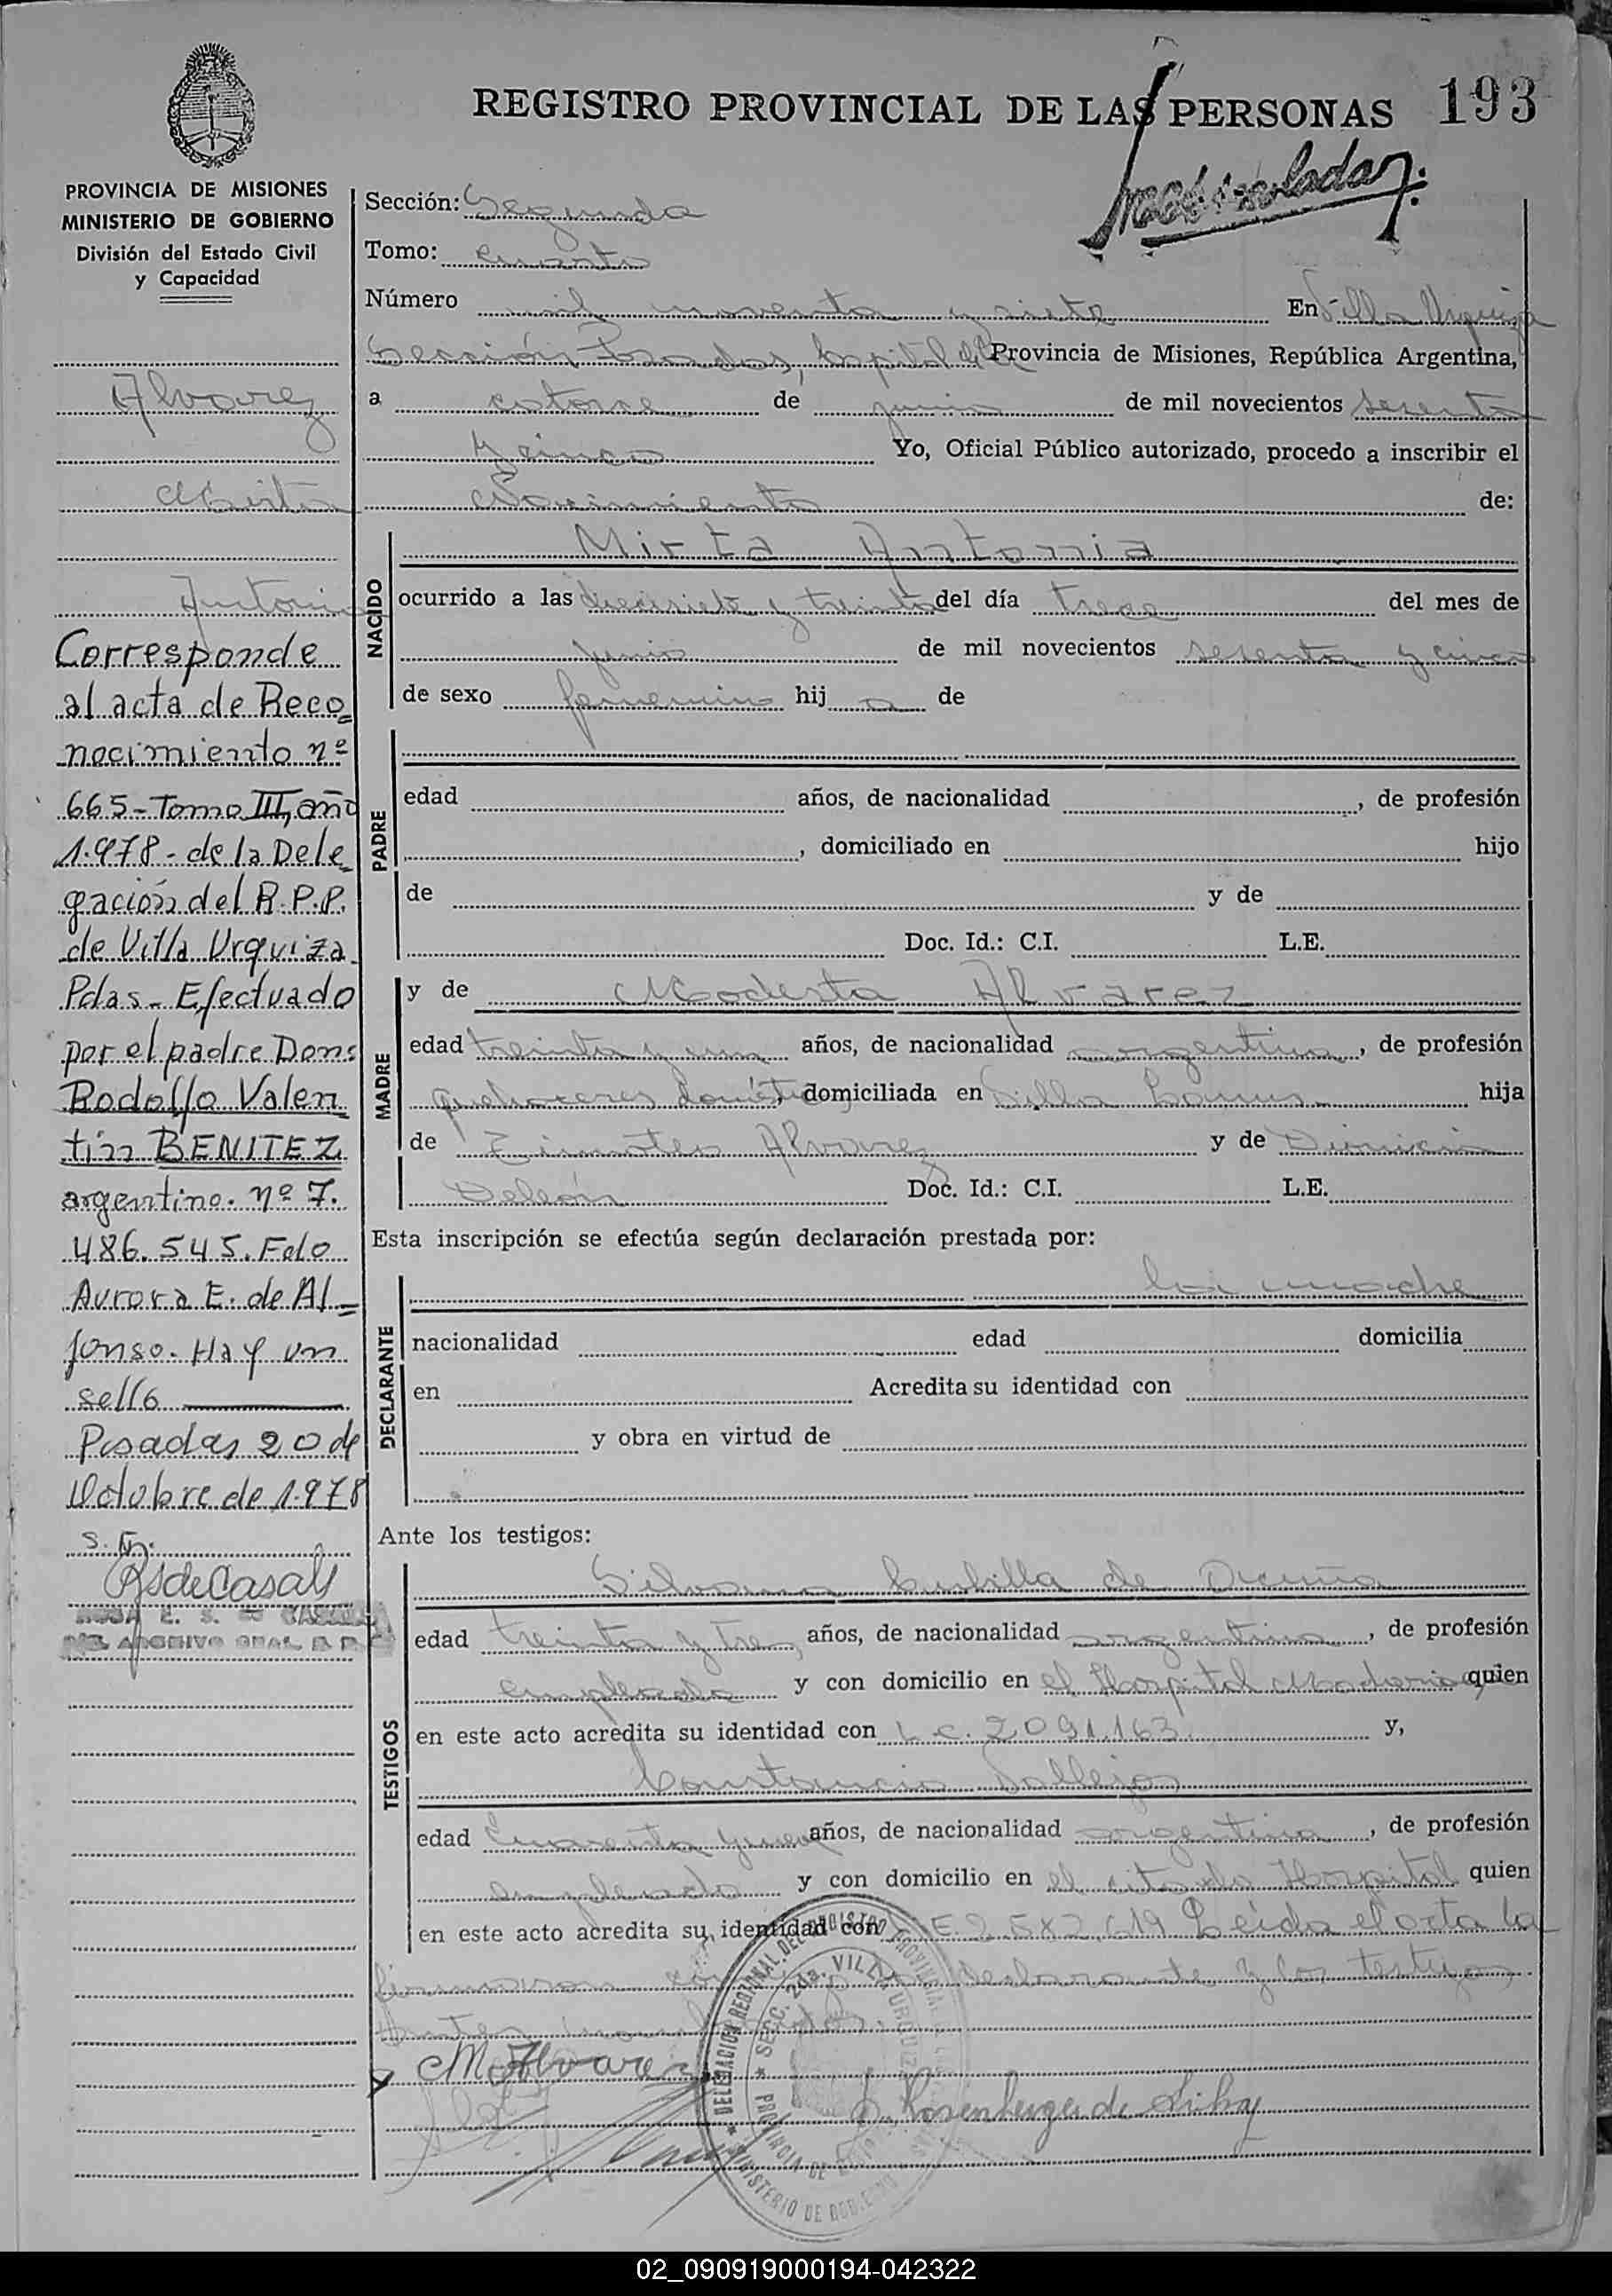 REGISTRO PROVINCIAL DE LAS PERSONAS 193
PROVINCIA DE MISIONES
MINISTERIO DE GOBIERNO
División del Estado Civil
y Capacidad
Alvarez
Mirta
Antonia
Corresponde
al acta de Reco=
nocimiento nº
665-Tomo III, año
1.978- de la Dele=
gación del R.P.P.
de Villa Urquiza
Pdas- Efectuado
por el padre Don:
Rodolfo Valen
tin BENITEZ
argentino. nº 7.
486.545. Fdo
Aurora E. de Al=
fonso. Hay un
sello
Posadas 20 de
Octubre de 1.978
Sección: Segunda
Tomo: cuarto
Número mil noventa y siete En Villa Urquiza
Sección Posadas, Capital de la Provincia de Misiones, República Argentina,
a catorce de junio de mil novecientos sesenta
y cinco Yo, Oficial Público autorizado, procedo a inscribir el
Nacimiento de:
NACIDO
Mirta Antonia
ocurrido a las diecisiete y treinta del día trece del mes de
junio de mil novecientos sesenta y cinco
de sexo femenino hij a de
PADRE
edad años, de nacionalidad , de profesión
, domiciliado en hijo
de y de
Doc. Id.: C.I. L.E.
MADRE
y de Modesta Alvarez
edad treinta y un años, de nacionalidad argentina, de profesión
quehaceres domésticos, domiciliada en Villa Lanus hija
de Timoteo Alvarez y de Dionicia
Deleón Doc. Id.: C.I. L.E.
Esta inscripción se efectúa según declaración prestada por:
DECLARANTE
la madre
nacionalidad edad domicilia
en Acredita su identidad con
y obra en virtud de
Ante los testigos:
TESTIGOS
Silvana de
edad treinta y tres años, de nacionalidad argentina, de profesión
empleada y con domicilio en el Hospital quien
en este acto acredita su identidad con L.C. 2091.163. y,
Constancio Vallejos
edad cuarenta y nueve años, de nacionalidad argentina, de profesión
empleado y con domicilio en el citado Hospital quien
en este acto acredita su identidad con Leída el acta la
firmaron declarante y los testigos
M. Alvarez
DELEGACION REGIONAL DEL REGISTRO PROVINCIAL
SECC. 2da. VILLA URQUIZA
PROVINCIA DE
MINISTERIO DE GOBIERNO
02_090919000194-042322